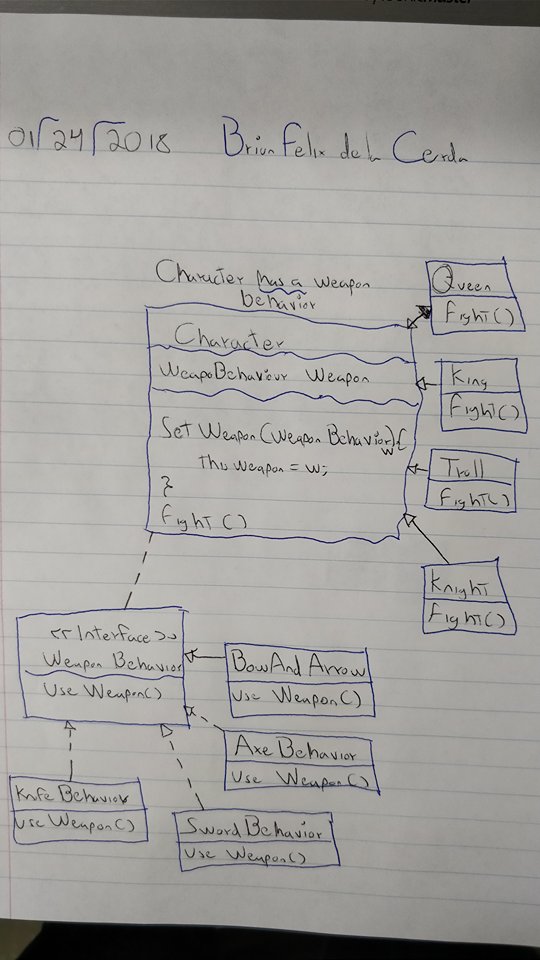 01/24/2018 Brian Felix de la Cerda
Character has a weapon
behavior
Character
WeapoBehaviour Weapon
Set Weapon (Weapon Behavior w){
this weapon = w;
}
fighT()
Queen
fighT()
King
fighT()
Troll
fighT()
Knight
fighT()
<<Interface>>
Weapon Behavior
Use Weapon()
BowAndArrow
Use Weapon()
Axe Behavior
Use Weapon()
Knife Behavior
Use Weapon()
Sword Behavior
Use Weapon()